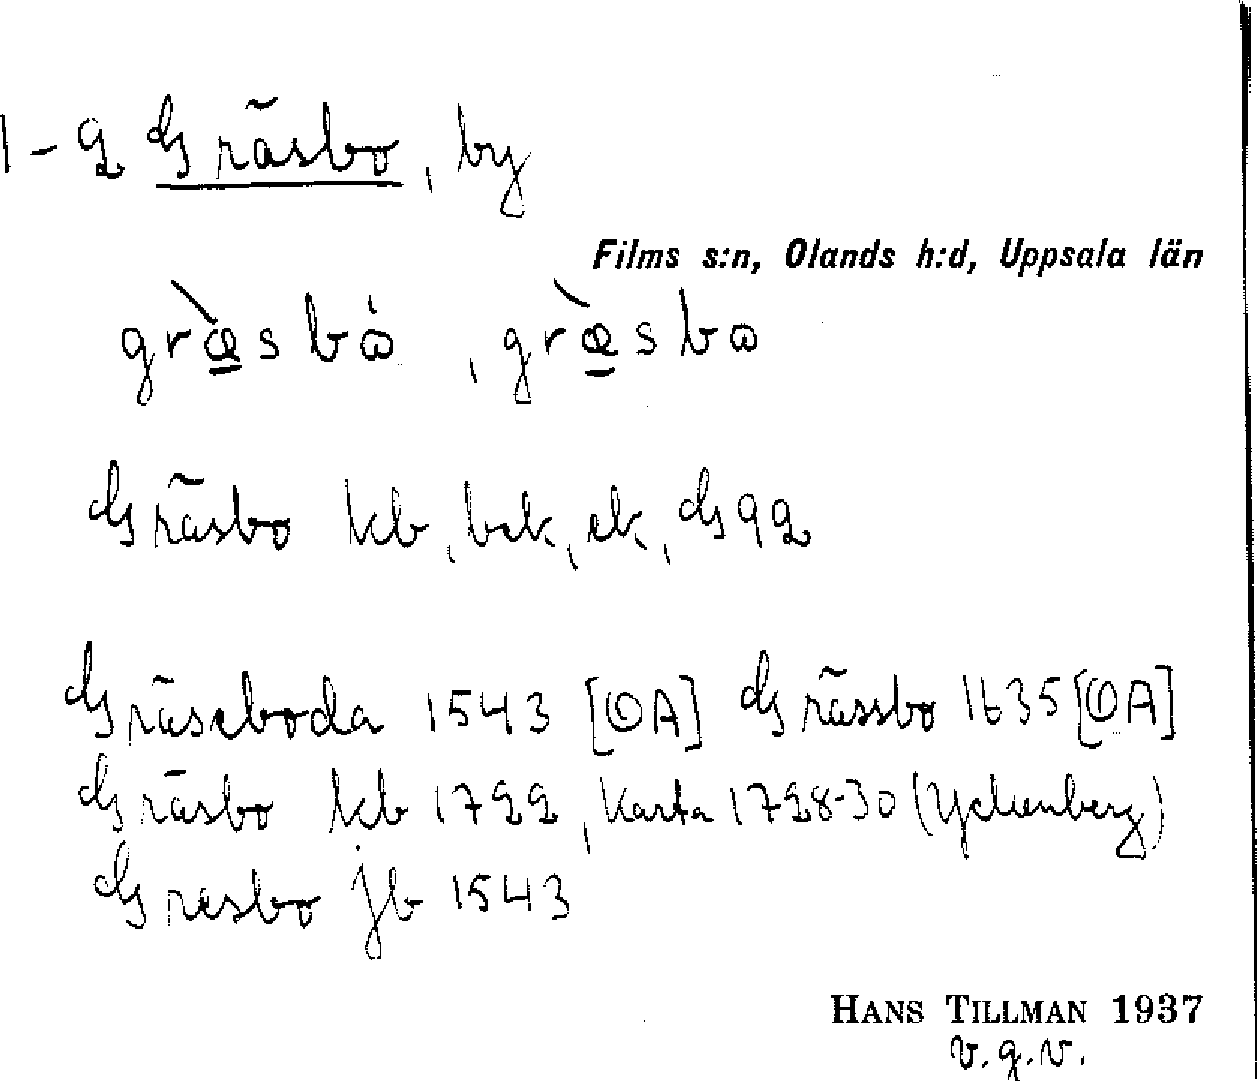 1-2 Gräsbo, by
Films s:n, Olands h:d, Uppsala län
græ̀sbω̇, græ̀sbω
Gräsbo kb, bek, ek, G92
Gräseboda 1543 [OA] Grässbo 1635 [OA]
Gräsbo kb 1722, Karta 1728-30 (Yckenberg)
Gresbo jb 1543
HANS TILLMAN 1937
v.g.v.